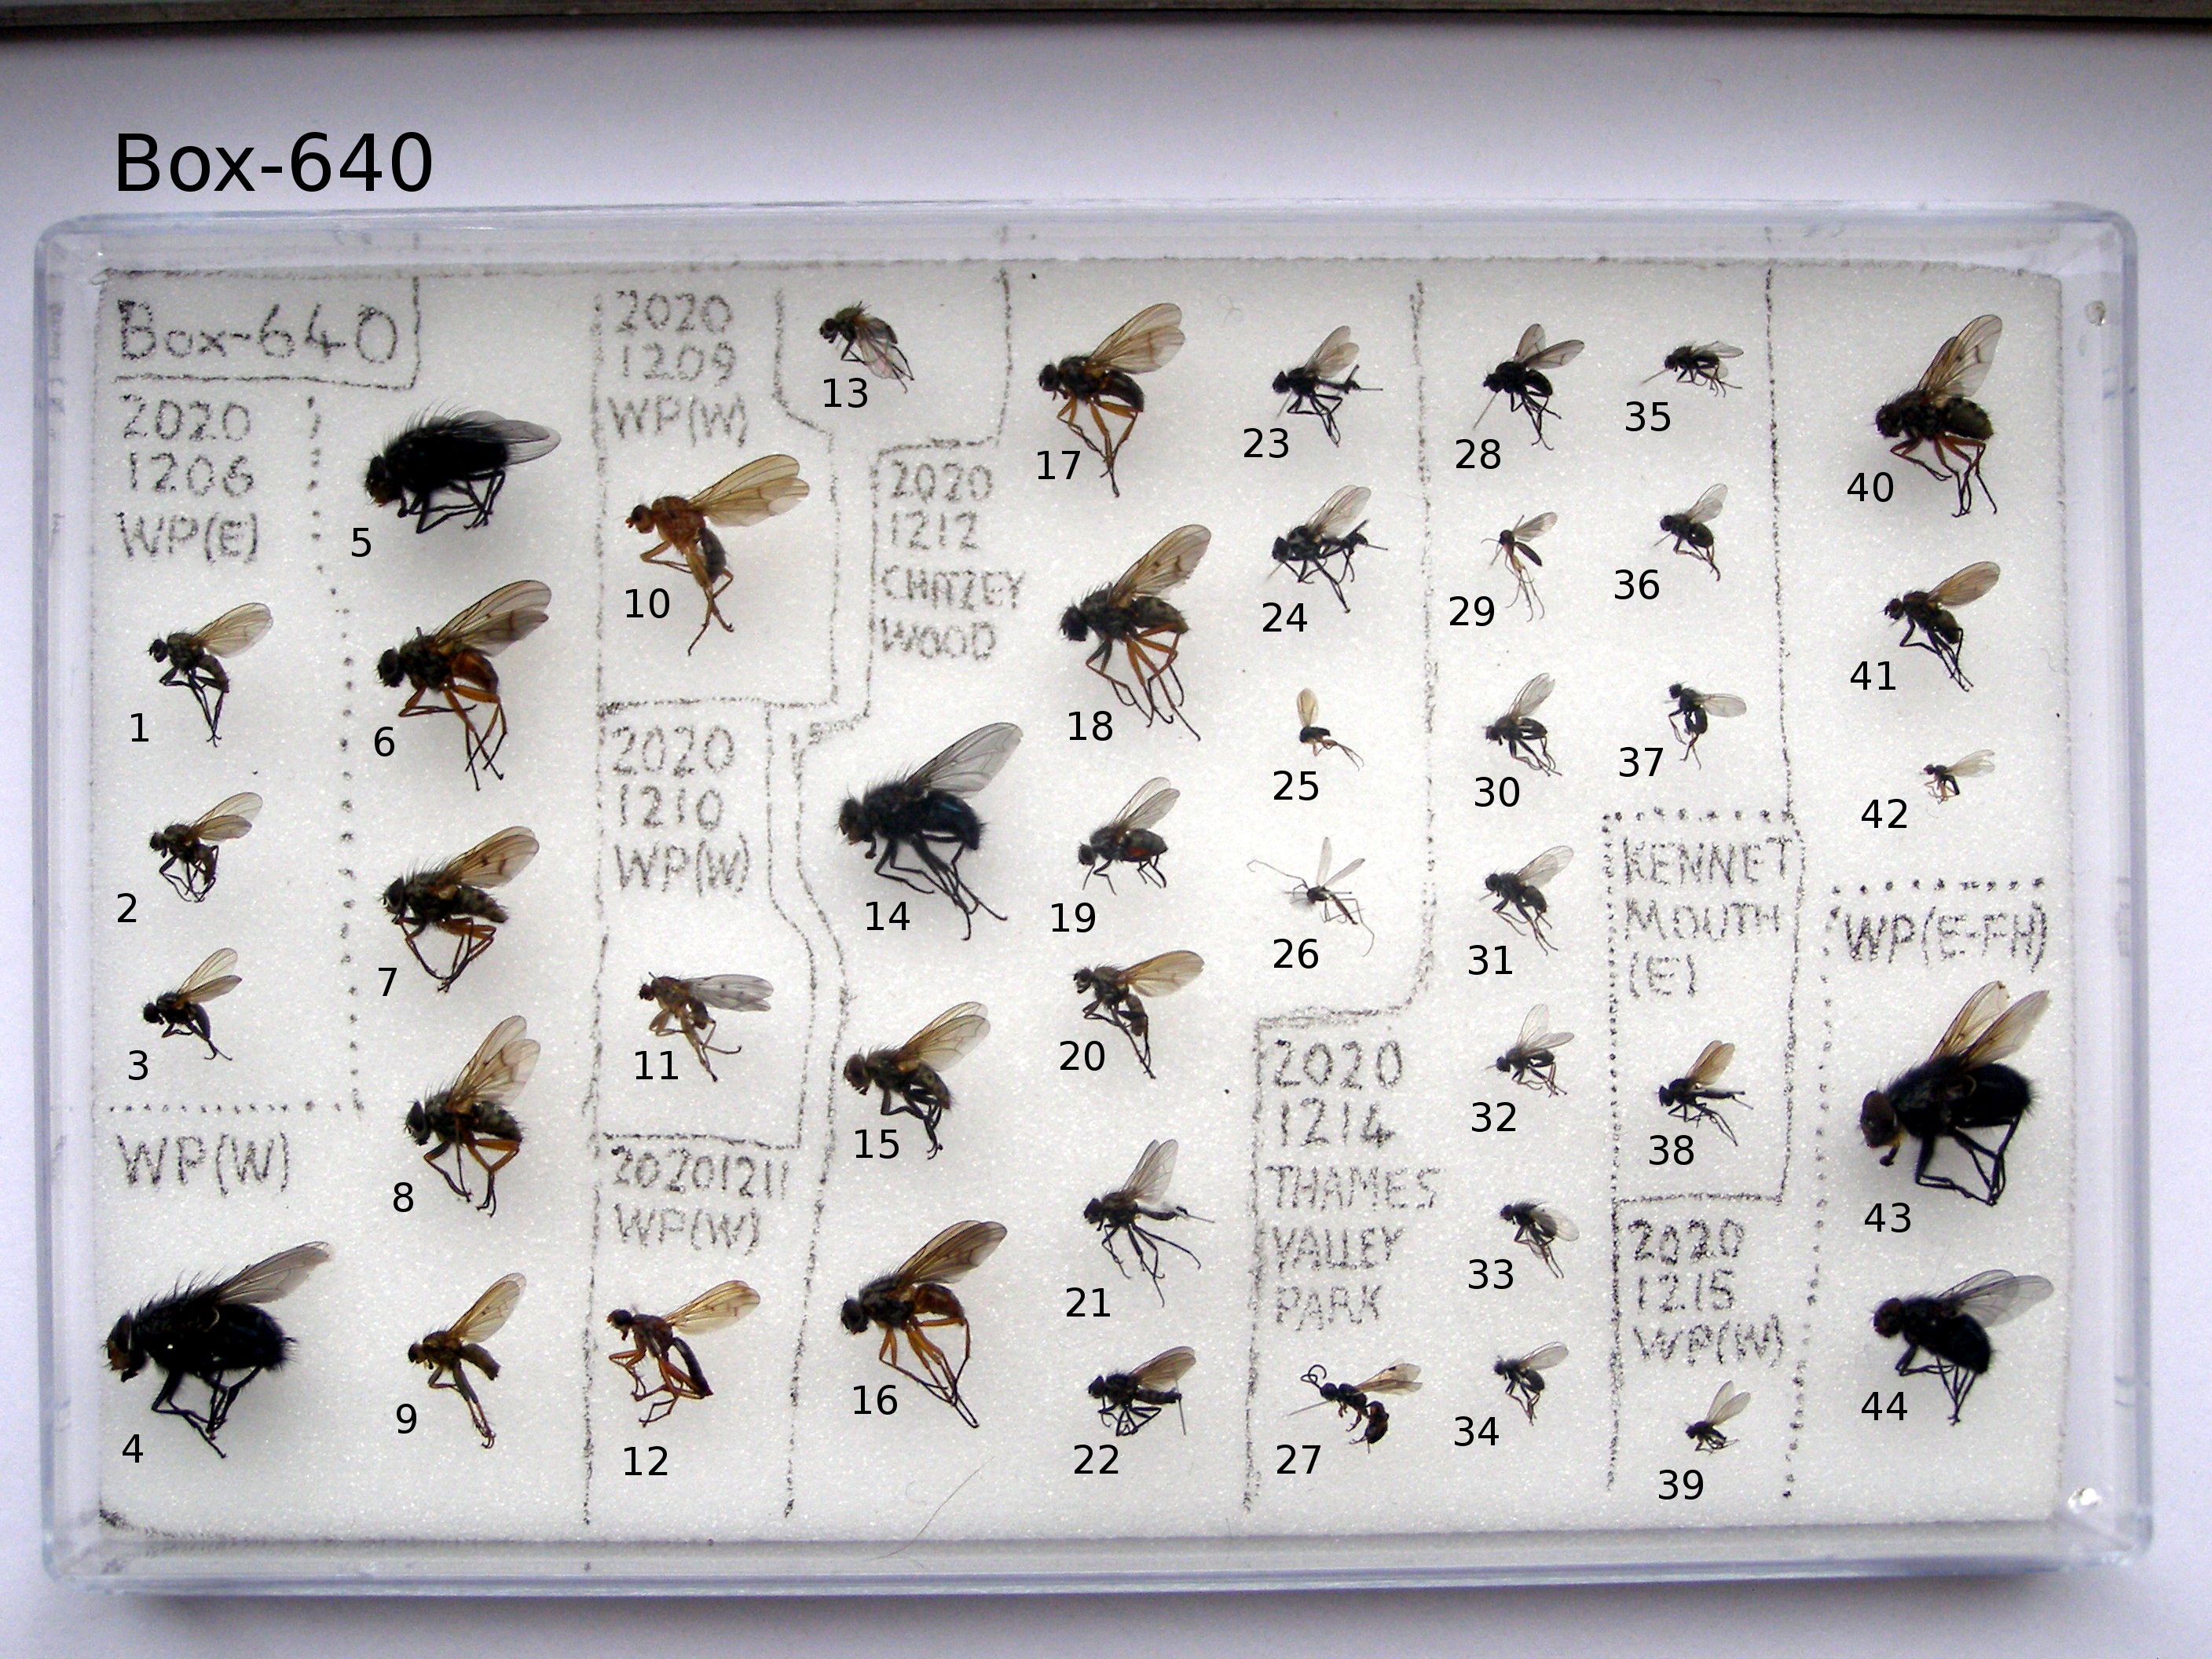 Box-640
Box-640
2020
1206
WP(E)
1
2
3
WP(W)
4
5
6
7
8
9
2020
1209
WP(W)
10
2020
1210
WP(W)
11
20201211
WP(W)
12
13
2020
1212
CHAZEY
WOOD
14
15
16
17
18
19
20
21
22
23
24
25
26
2020
1214
THAMES
VALLEY
PARK
27
28
29
30
31
32
33
34
35
36
37
KENNET
MOUTH
(E)
38
2020
1215
WP(W)
39
40
41
42
WP(E-FH)
43
44